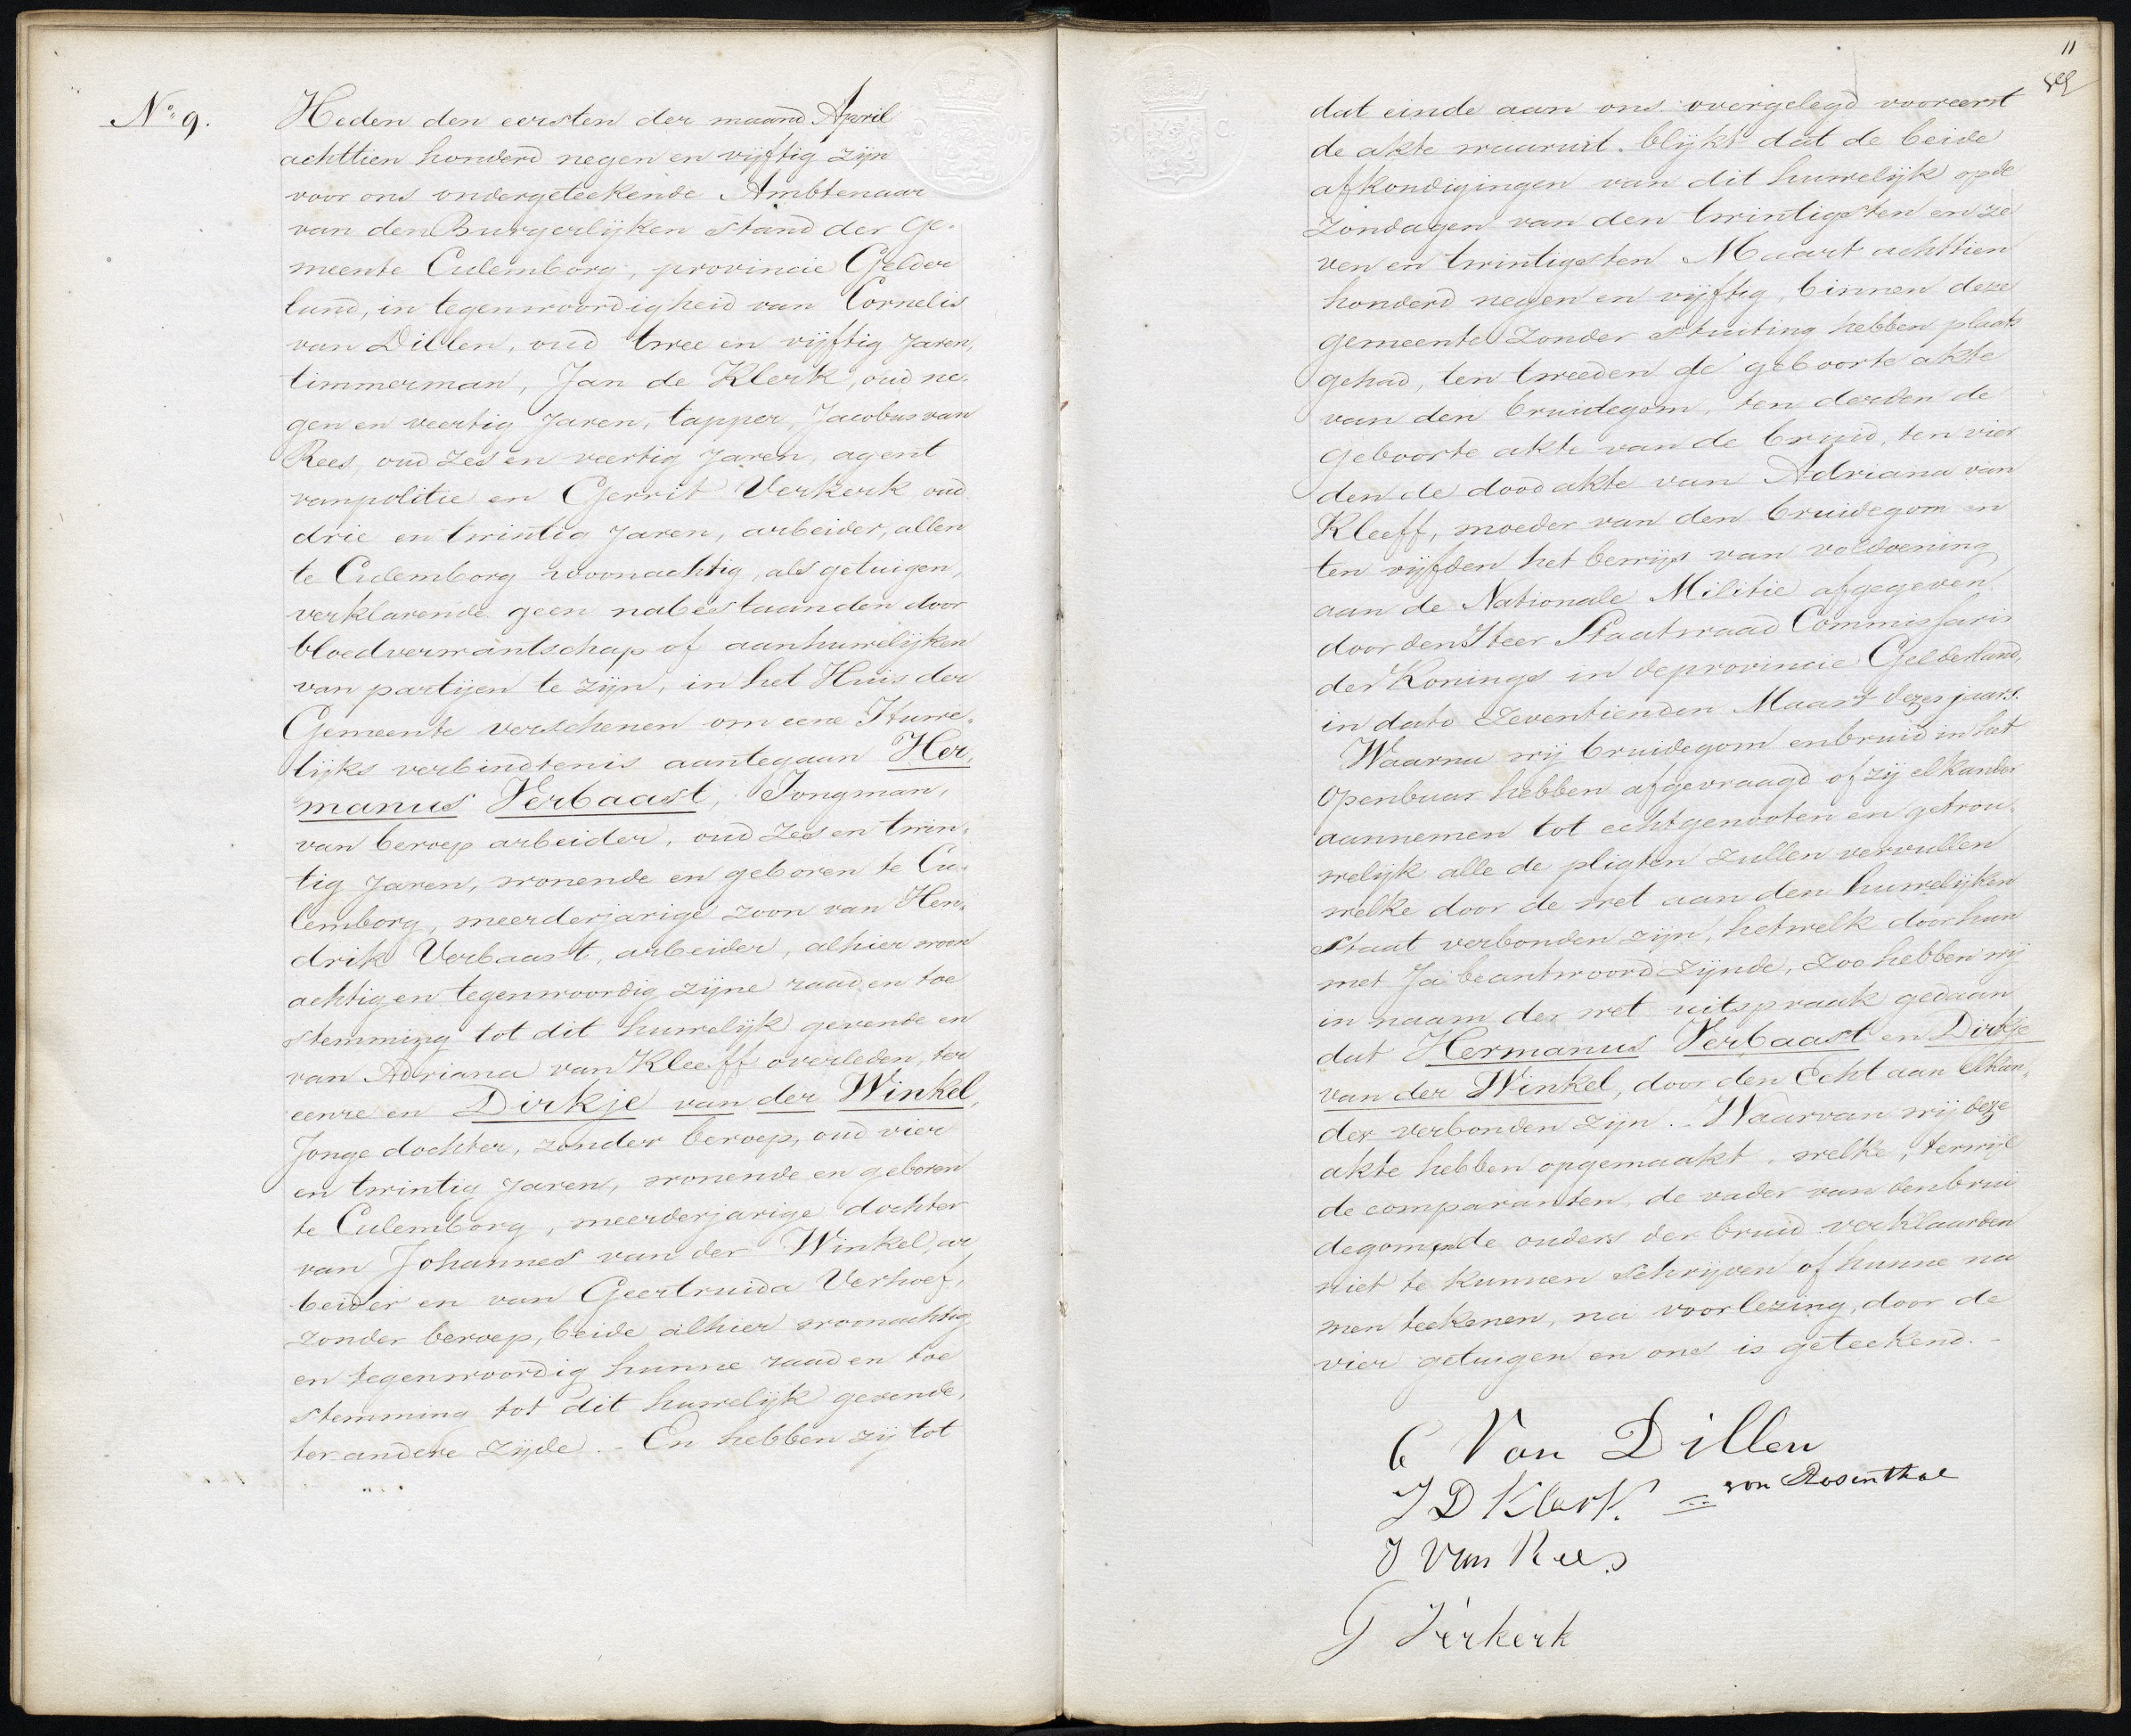 No. 9.
Heden den eersten der maand April
achttien honderd negen en vijftig zijn
voor ons ondergeteekende Ambtenaar
van den Burgerlijken stand der Ge-
meente Culemborg, provincie Gelder
land, in tegenwoordigheid van Cornelis
van Dillen, oud twee en vijftig Jaren,
timmerman, Jan de Klerk, oud ne-
gen en veertig Jaren, tapper, Jacobus van
Rees, oud zes en veertig Jaren, agent
van politie en Gerrit Verkerk oud
drie en twintig Jaren, arbeider, allen
te Culemborg woonachtig, als getuigen,
verklarende geen nabestaanden door
bloedverwantschap of aanhuwelijken
van partijen te zijn, in het Huis der
Gemeente verschenen om eene Huwe-
lijks verbindtenis aantegaan Her,
manus Verbaast, Jongman,
van beroep arbeider, oud zes en twin-
tig Jaren, wonende en geboren te Cu-
lemborg, meerderjarige zoon van Hen-
drik Verbaast, arbeider, alhier woon
achtig en tegenwoordig zijne raad en toe
stemming tot dit huwelijk gevende en
van Adriana van Kleeff overleden, ter
eenre en Dirkje van der Winkel,
Jonge dochter, zonder beroep, oud vier
en twintig Jaren, wonende en geboren
te Culemborg, meerderjarige dochter
van Johannes van der Winkel, ar
beider en van Geertruida Verhoef,
zonder beroep, beide alhier woonachtig
en tegenwoordig hunne raad en toe
stemming tot dit huwelijk gevende,
ter andere zijde. - En hebben zij tot
11
dat einde aan ons overgelegd vooreerst
de akte waaruit blijkt dat de beide
afkondigingen van dit huwelijk op de
Zondagen van den twintigsten en ze
ven en twintigsten Maart achttien
honderd negen en vijftig, binnen deze
gemeente zonder stuiting hebben plaats
gehad, ten tweeden de geboorte akte
van den bruidegom, ten derden de
geboorte akte van de bruid, ten vier
den de dood akte van Adriana van
Kleeff, moeder van den bruidegom en
ten vijfden het bewijs van voldoening
aan de Nationale Militie afgegeven
door den Heer Staatsraad Commissaris
des Konings in de provincie Gelderland,
in dato Zeventienden Maart dezes jaars.
Waarna wij bruidegom en bruid in het
openbaar hebben afgevraagd of zij elkander
aannemen tot echtgenooten en getrou-
welijk alle de pligten zullen vervullen
welke door de wet aan den huwelijken
Staat verbonden zijn, hetwelk door hun
met Ja beantwoord zijnde, zoo hebben wij
in naam der wet uitspraak gedaan
dat Hermanus Verbaast en Dirkje
van der Winkel, door den Echt aan Elkan-
der verbonden zijn. - Waarvan wij deze
akte hebben opgemaakt, welke, terwijl
de comparanten, de vader van den brui
degom en de ouders der bruid verklaarden
niet te kunnen schrijven of hunne na
men teekenen, na voorlezing, door de
vier getuigen en ons is geteekend. -
C Van Dillen
J D Klerk. von Rosenthal
J Van Rees
G Verkerk